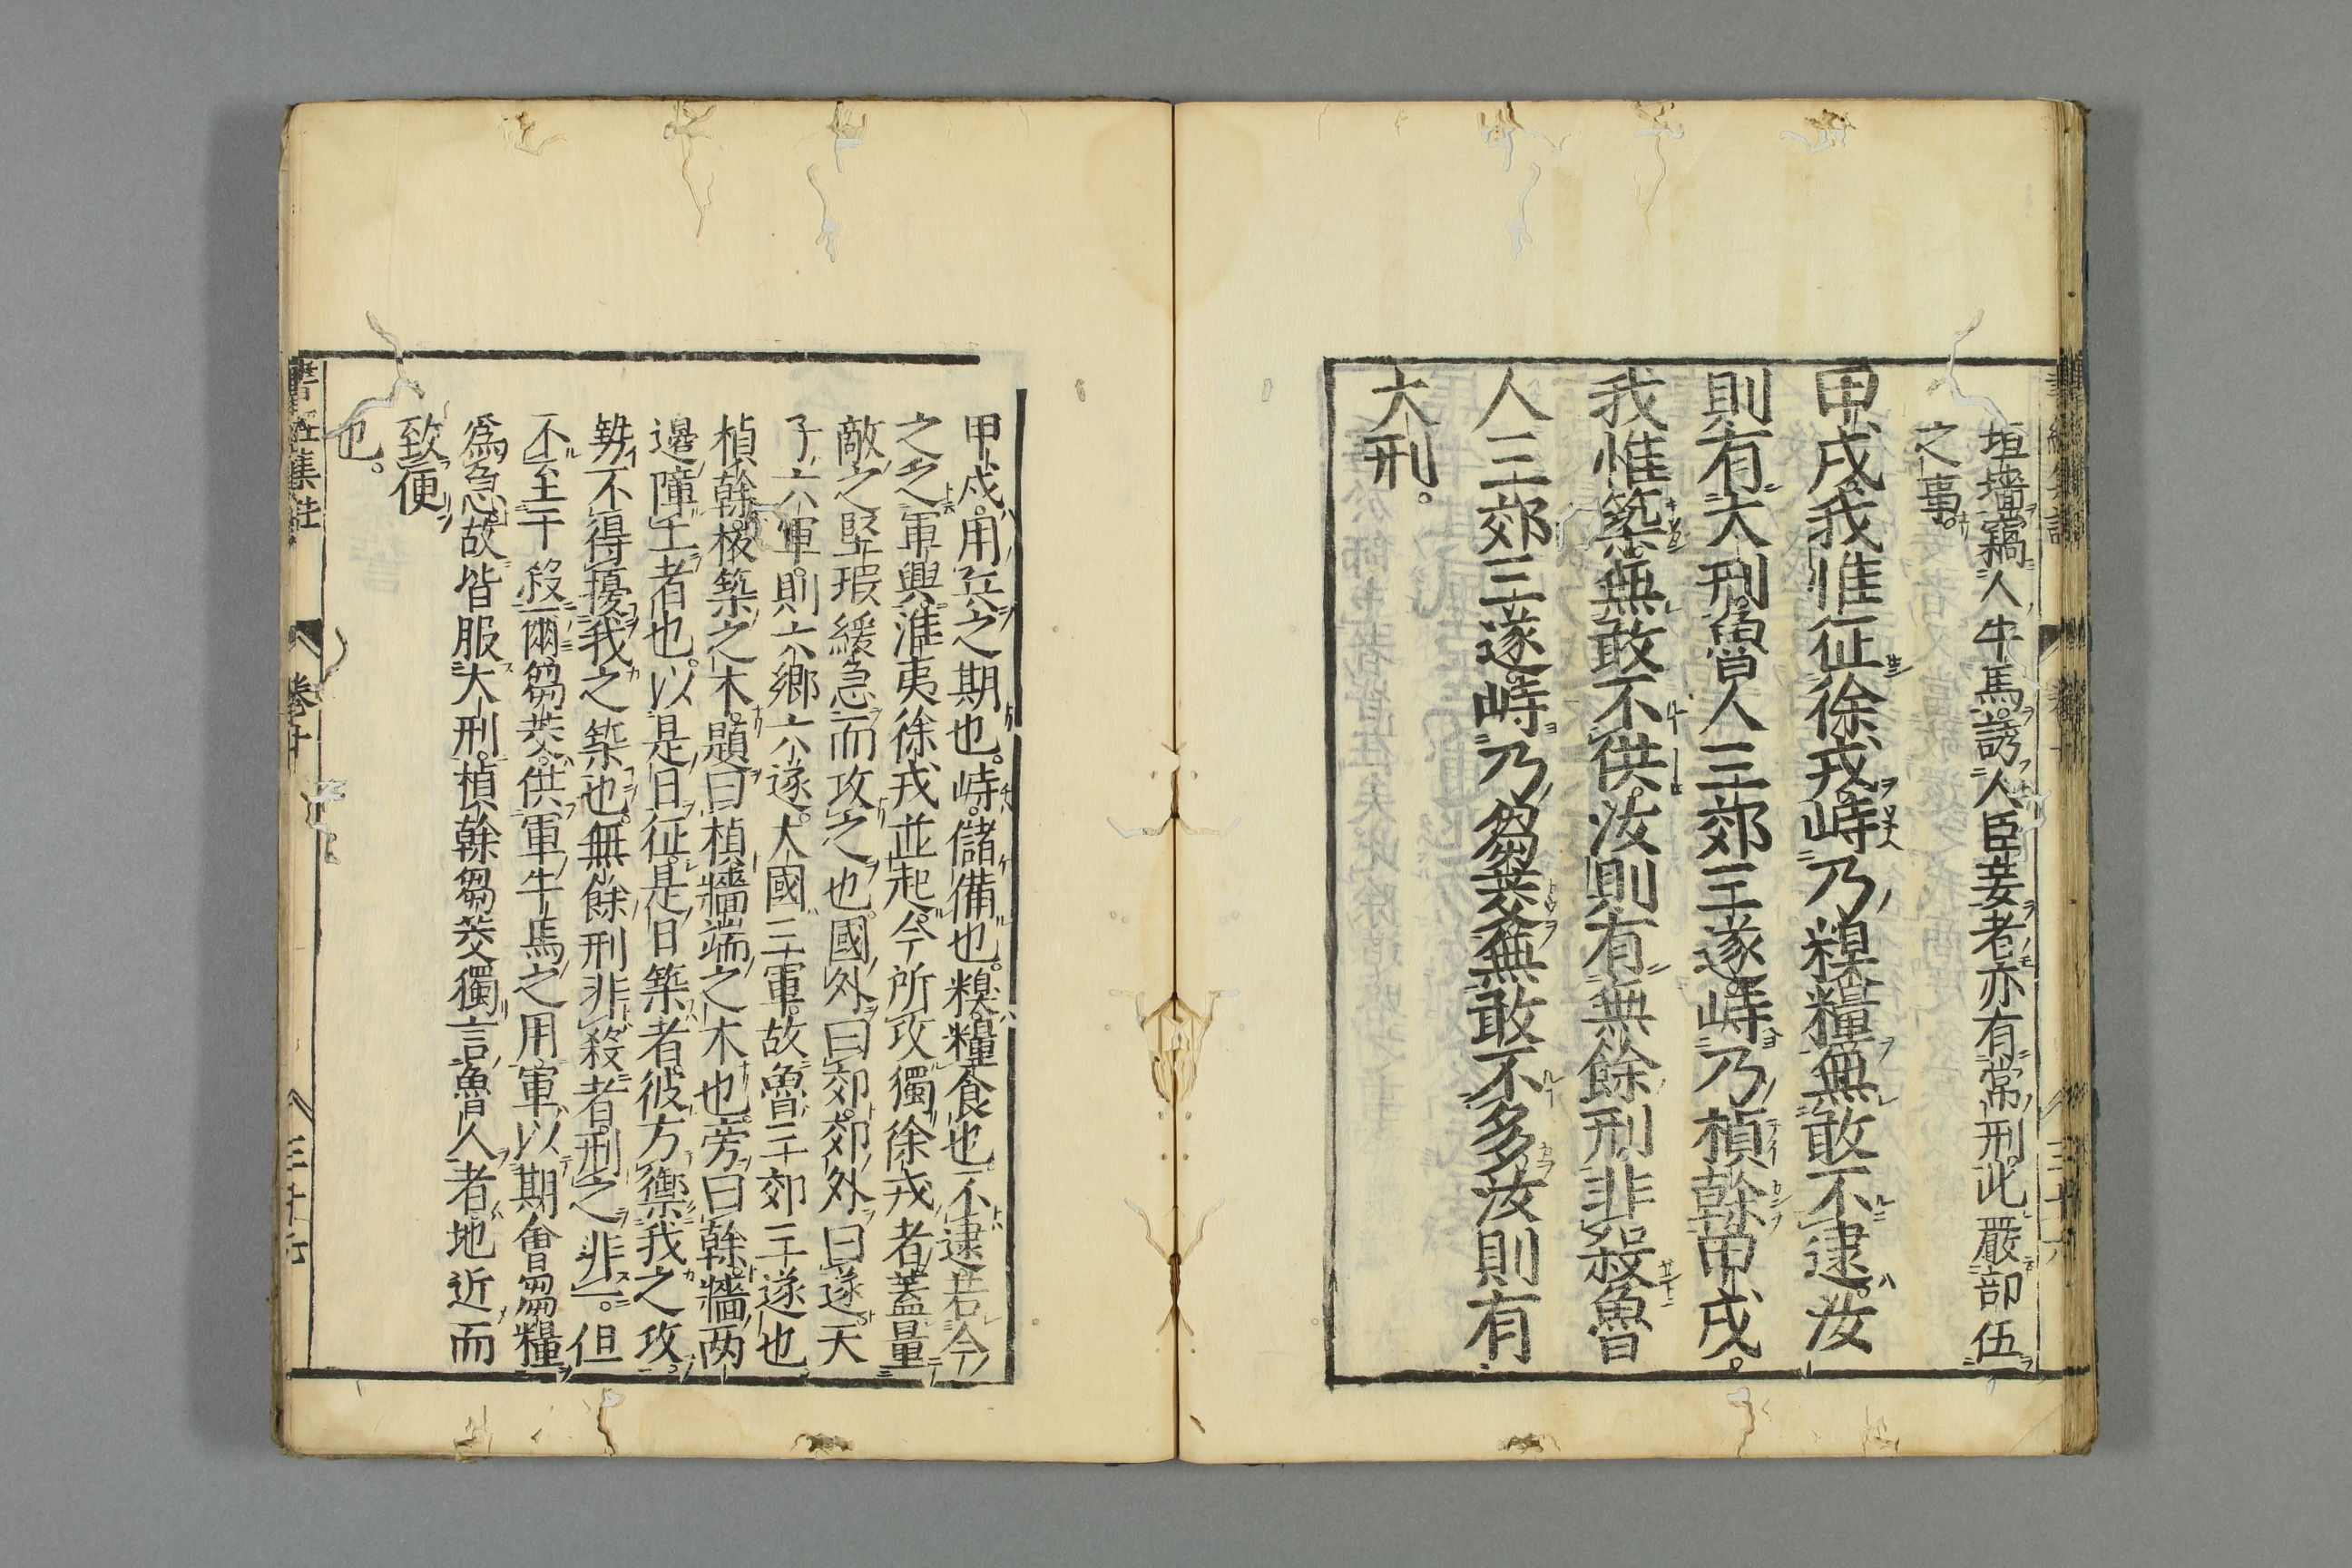 垣墻竊人牛馬誘人臣妾者亦有常刑此嚴部伍
之事
甲戌我惟征徐戎峙乃糗糧無敢不逮汝
則有大刑魯人三郊三遂峙乃楨榦甲戌
我惟築無敢不供汝則有無餘刑非殺魯
人三郊三遂峙乃芻茭無敢不多汝則有
大刑。
甲戌用兵之期也。峙儲備也。糗糧食也不逮若今
之乏軍興淮夷徐戎並起今所攻獨徐戎者蓋量
敵之堅瑕緩急而攻之也國外曰郊郊外曰遂天
子六軍則六鄉六遂大國三軍故魯三郊三遂也
楨榦板築之木題曰楨墻端之木也旁曰榦墻兩
邊障土者也以是日征是日築者彼方禦我之攻
勢不得擾我之築也無餘刑非殺者刑之非一。但
不至于殺爾芻茭供軍牛馬之用軍以期會芻糧
為急故皆服大刑楨榦芻茭獨言魯人者地近而
致便
也。
書經集註 卷十 三十六